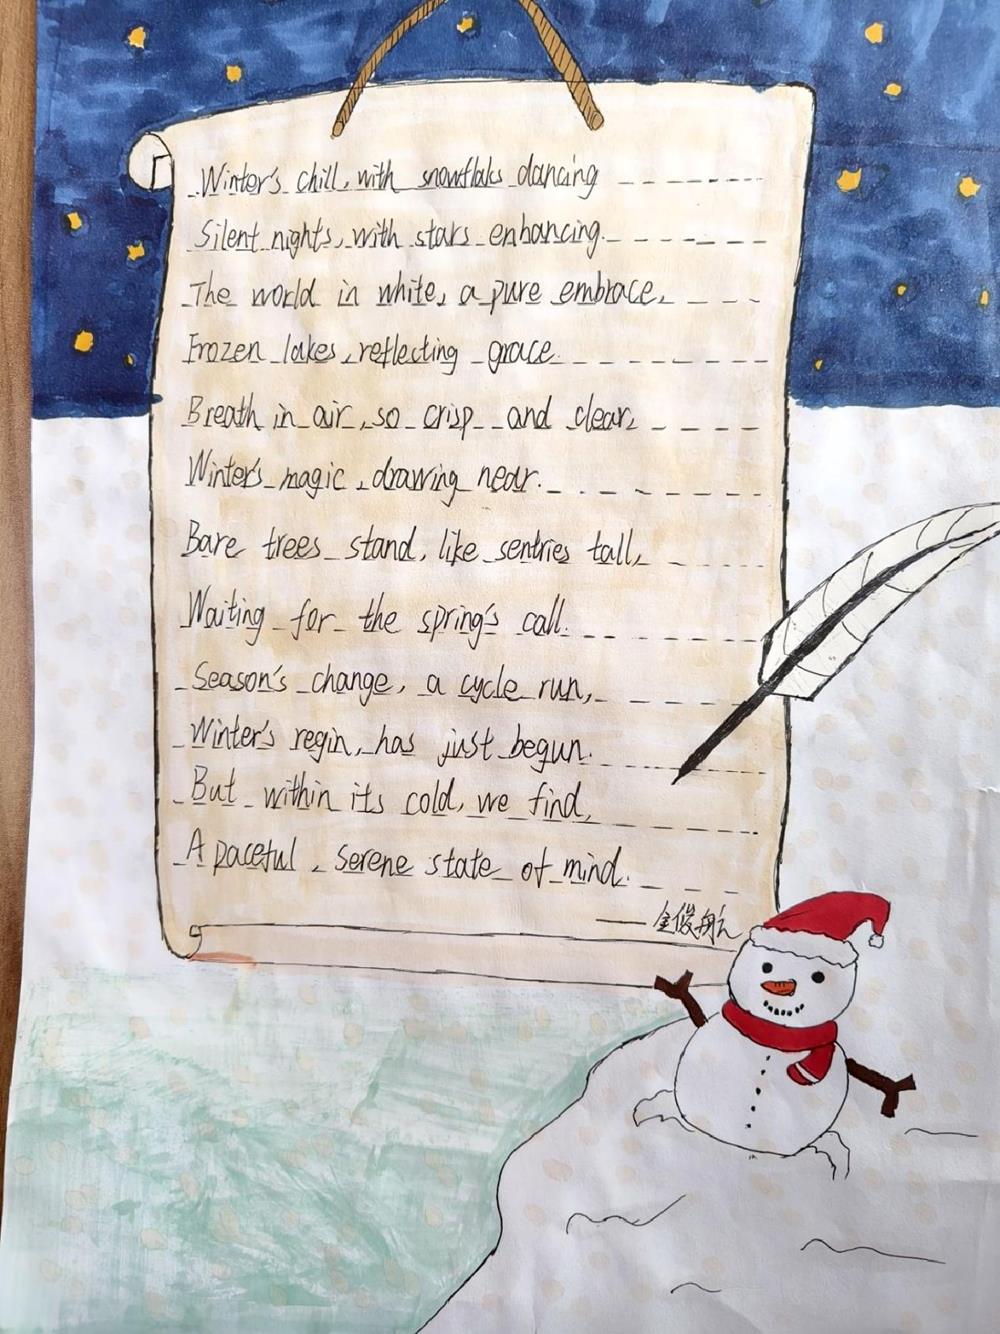 Winter's chill, with snowflaks dancing
Silent nights, with stars enhancing.
The world in white, a pure embrace,
Frozen lakes, reflecting grace.
Breath in air, so crisp and clear,
Winter's magic, drawing near.
Bare trees stand, like sentries tall,
Waiting for the spring's call.
Season's change, a cycle run,
Winter's regin, has just begun.
But within its cold, we find,
A paceful, serene state of mind.
——金俊航